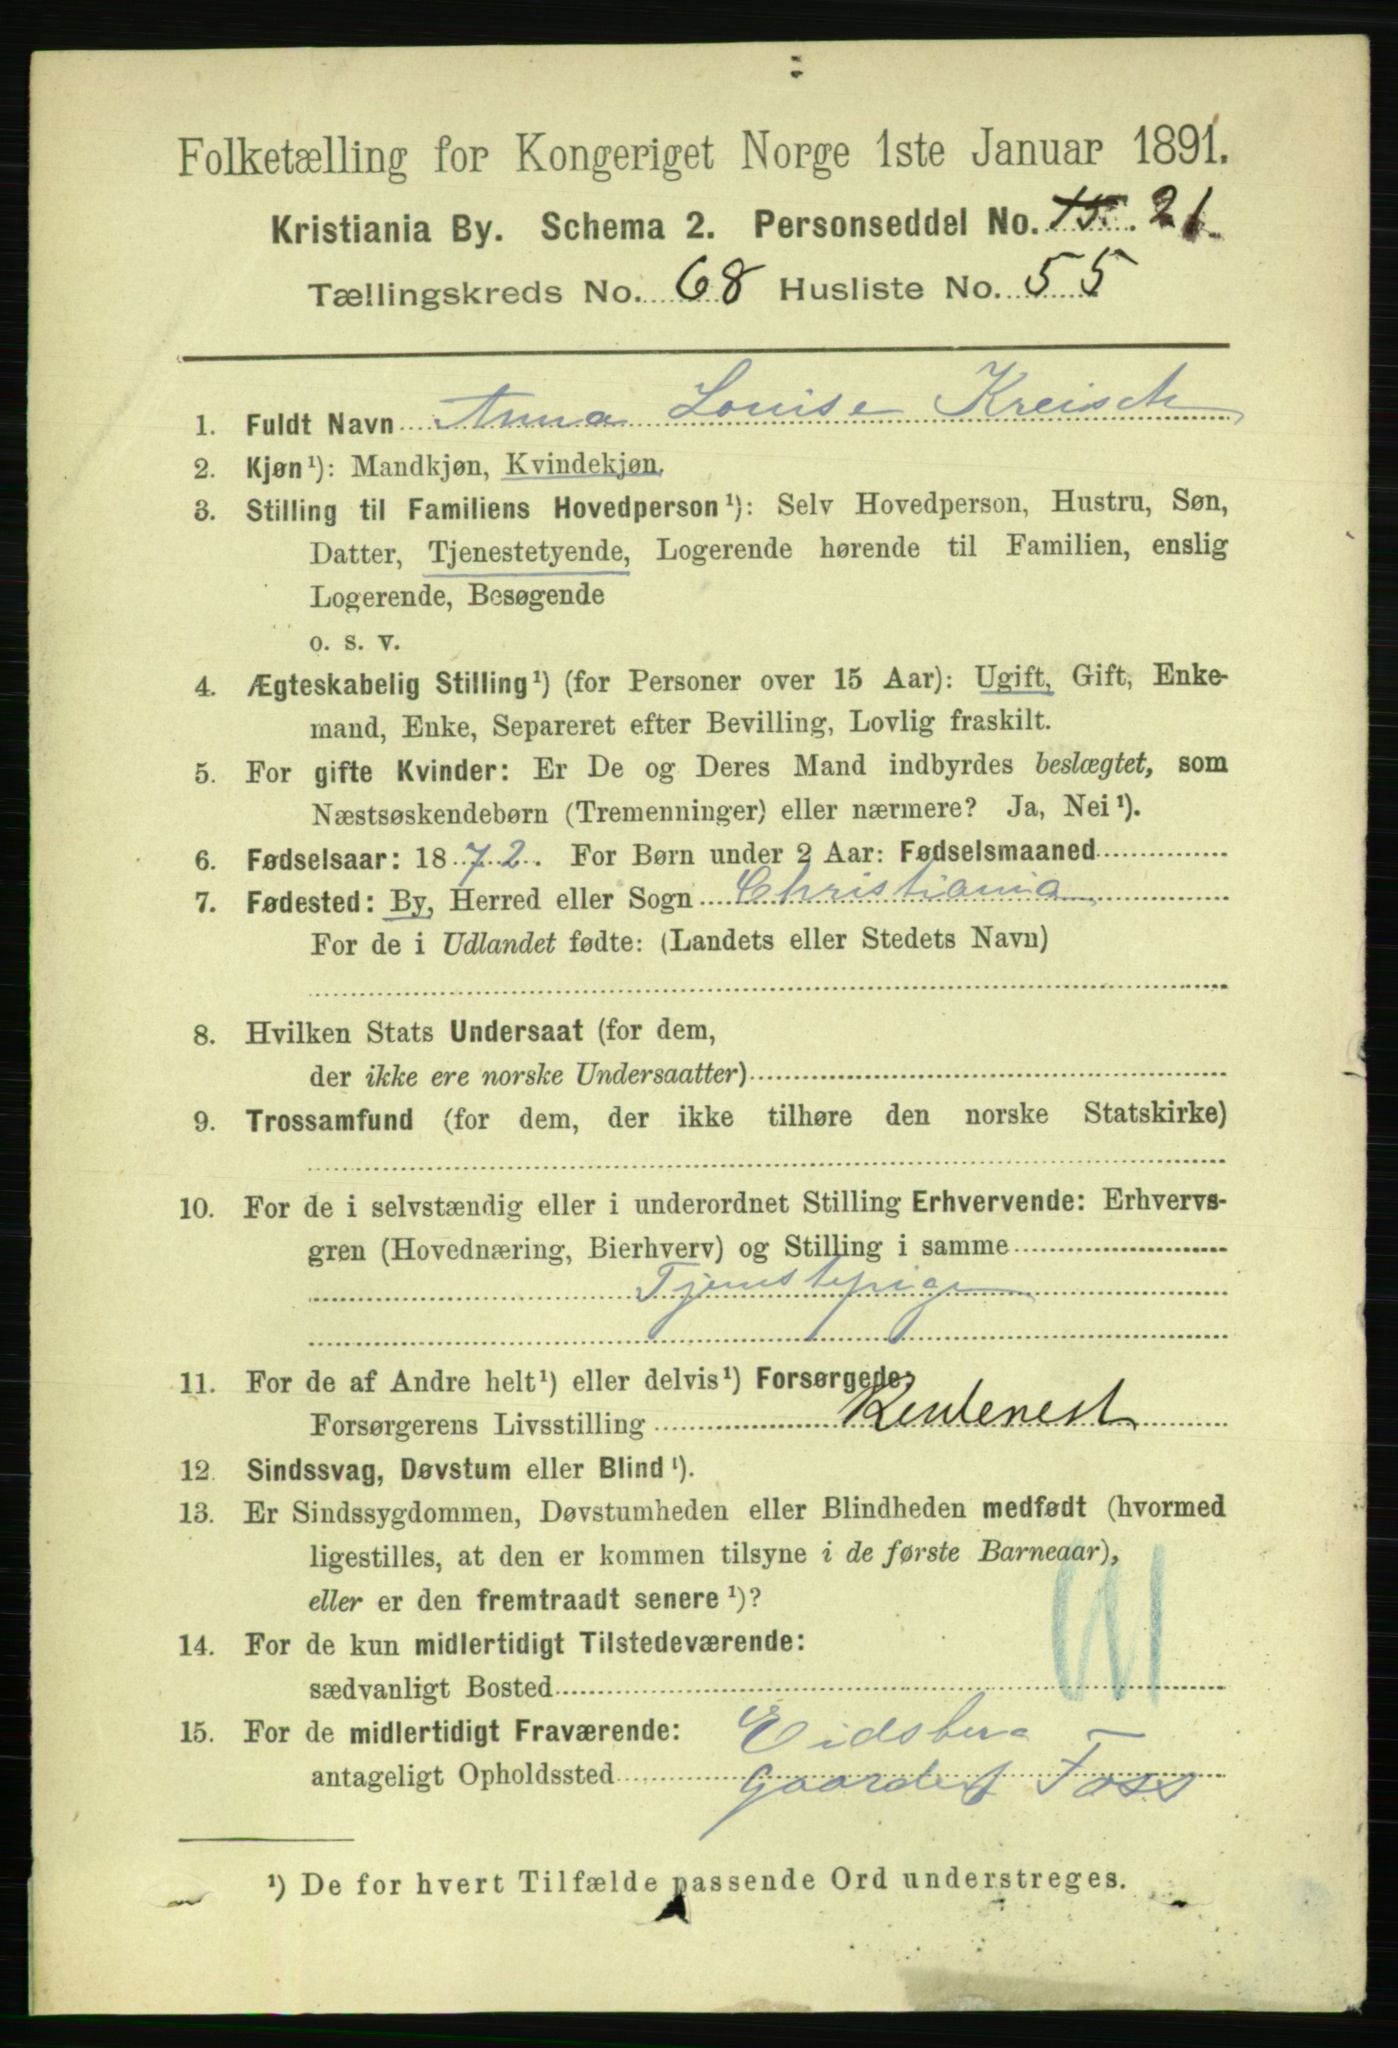 Folketælling for Kongeriget Norge 1ste Januar 1891.
Kristiania By. Schema 2. Personseddel No. 15. 21
Tællingskreds No. 68 Husliste No. 55
1. Fuldt Navn Anna Louise Kreisch
2. Kjøn¹): Mandkjøn, Kvindekjøn.
3. Stilling til Familiens Hovedperson¹): Selv Hovedperson, Hustru, Søn,
Datter, Tjenestetyende, Logerende hørende til Familien, enslig
Logerende, Besøgende
o. s. v.
4. Ægteskabelig Stilling¹) (for Personer over 15 Aar): Ugift, Gift, Enke-
mand, Enke, Separeret efter Bevilling, Lovlig fraskilt.
5. For gifte Kvinder: Er De og Deres Mand indbyrdes beslægtet, som
Næstsøskendebørn (Tremenninger) eller nærmere? Ja, Nei¹).
6. Fødselsaar: 1872. For Børn under 2 Aar: Fødselsmaaned
7. Fødested: By, Herred eller Sogn Christiania
For de i Udlandet fødte: (Landets eller Stedets Navn)
8. Hvilken Stats Undersaat (for dem,
der ikke ere norske Undersaatter)
9. Trossamfund (for dem, der ikke tilhøre den norske Statskirke)
10. For de i selvstændig eller i underordnet Stilling Erhvervende: Erhvervs-
gren (Hovednæring, Bierhverv) og Stilling i samme
Tjenstepige
11. For de af Andre helt¹) eller delvis¹) Forsørgede:
Forsørgerens Livsstilling
12. Sindssvag, Døvstum eller Blind¹).
13. Er Sindssygdommen, Døvstumheden eller Blindheden medfødt (hvormed
ligestilles, at den er kommen tilsyne i de første Barneaar),
eller er den fremtraadt senere¹)?
14. For de kun midlertidigt Tilstedeværende:
sædvanligt Bosted
15. For de midlertidigt Fraværende: Eidsberg
antageligt Opholdssted Gaarden Foss
¹) De for hvert Tilfælde passende Ord understreges.